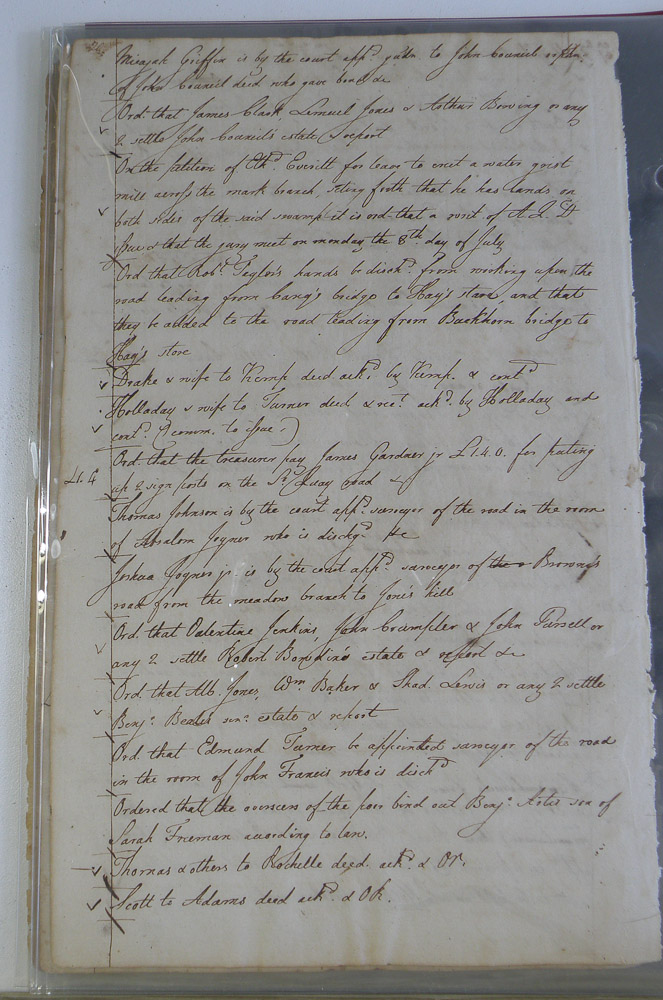 Micajah Griffin is by the court app.d gudn to John Council orphn.
of John Council decd who gave bond &c
Ord. that James Clark, Lemuel Jones & Arthur Bowing or any
2 settle John Council's estate & report
On the petition of Eth.d Everitt for leave to erect a water grist
mill across the mark branch, seting forth that he has lands on
both sides of the said swamp it is ord that a writ of A. Q. D
Issue & that the jury meet on monday the 8th day of July
Ord that Rob.t Taylor's hands be disch.d from working upon the
road leading from bridge to Hay's store, and that
they be added to the road leading from Buckhorn bridge to
Hay's store
Drake & wife to Kemp deed ack.d by Kemp. & cont.d
Holladay & wife to Turner deed & rec.t ack.d by Holladay and
cont.d (comm. to Issue.)
£1.4
Ord. that the treasurer pay James Gardner jr £1.4.0. for puting
up 2 sign posts on the Quay road
Thomas Johnson is by the court app.d surveyor of the road in the room
of Absalom Joyner who is dischg.d &c
Joshua Joyner jr. is by the court app.d surveyor of the Browne's
road from the meadow branch to Jone's hill
Ord. that Valentine Jenkins, John Crumpler & John Pursell or
any 2 settle Robert estate & report &c
Ord. that Alb. Jones, Wm Baker & Shad. Lewis or any 2 settle
Benj.a Beales senr. estate & report
Ord. that Edmund Turner be appointed surveyor of the road
in the room of John Francis who is disch.d
Ordered that the overseers of the poor bind out Benj.a Artis son of
Sarah Freeman according to law.
Thomas & others to Rochelle deed. ack.d & OR.
Scott to Adams deed ack.d & OR.